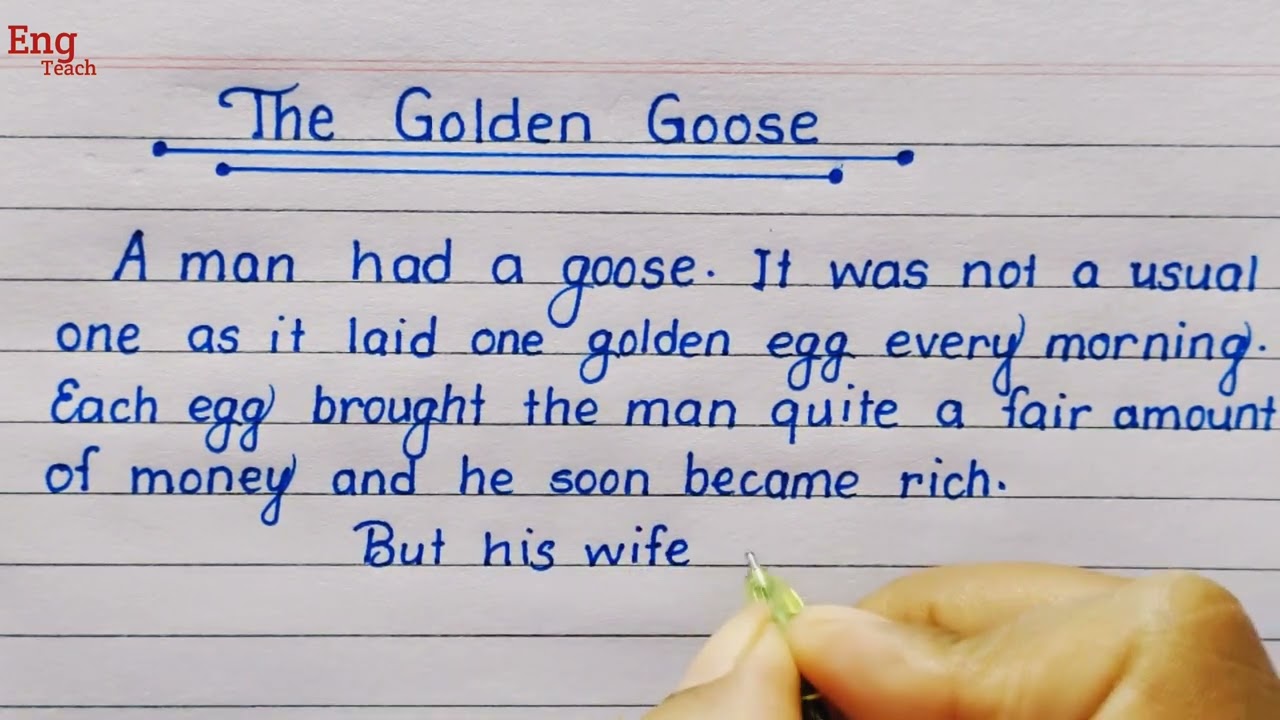 Eng
Teach
The Golden Goose
A man had a goose. It was not a usual
one as it laid one golden egg every morning.
Each egg brought the man quite a fair amount
of money and he soon became rich.
But his wife